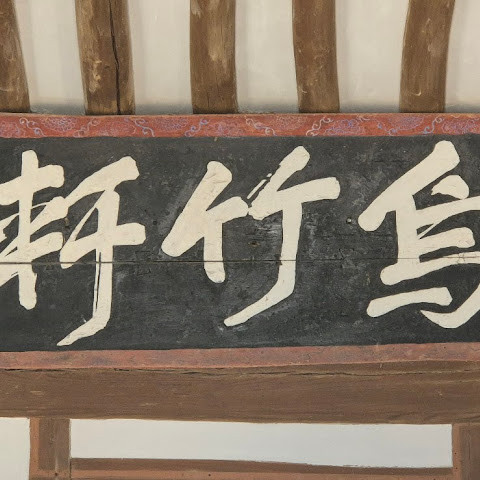 烏竹軒